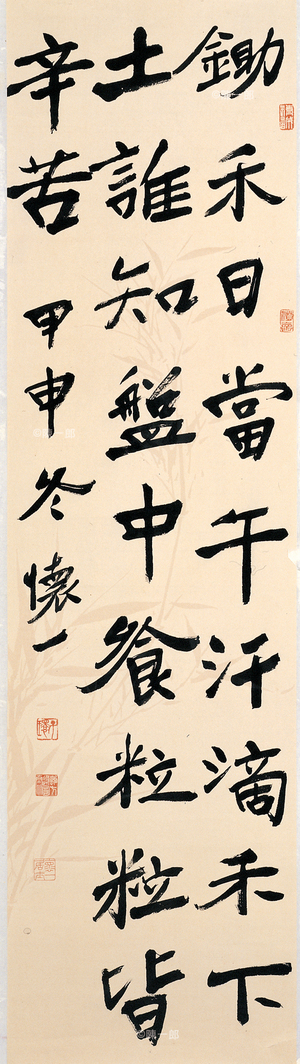 鋤禾日當午汗滴禾下
土誰知盤中飧粒粒皆
辛苦 甲申冬 懷一
©陳一郎
©陳一郎